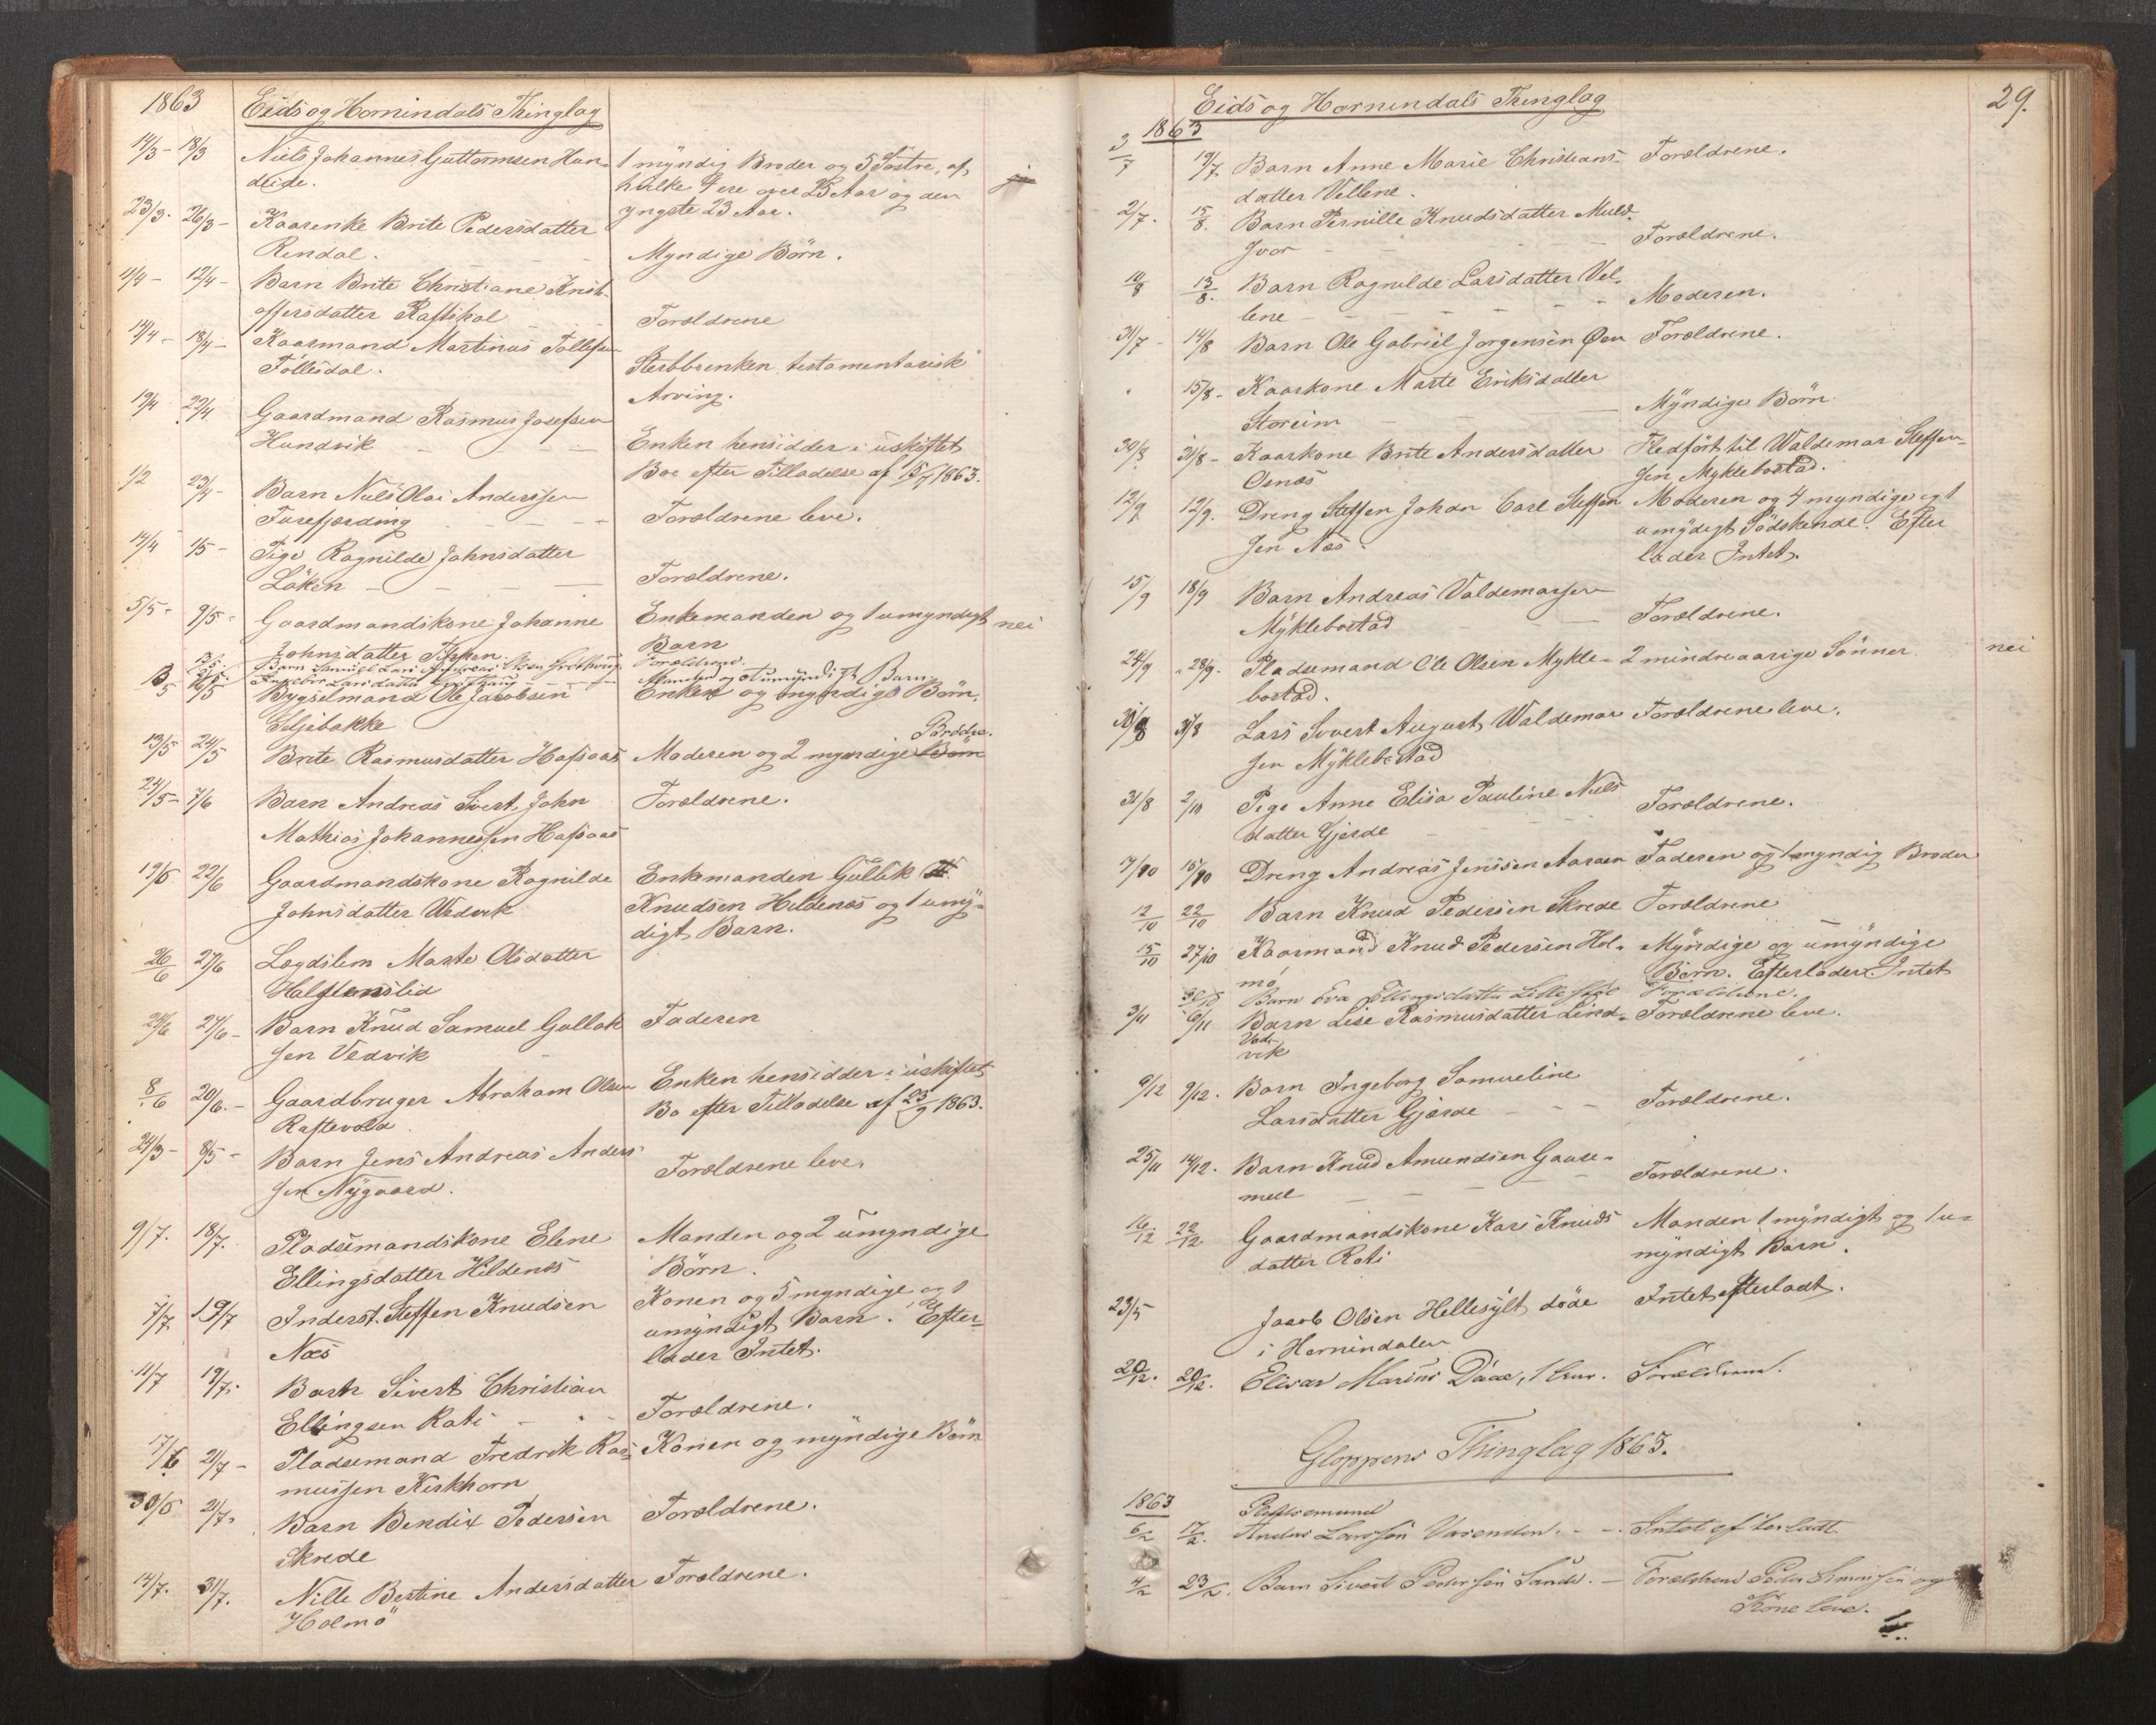 1863 Eids og Hornindals Thinglag
14/3 - 18/3 Niels Johannes Guttormsen Hun- 1 myndig Broder og 5 Søstre, af
deide. hvilke 4 ere over 25 Aar og den
yngste 23 Aar.
23/3. 26/3 - Kaarenke Brite Pedersdatter
Rendal. - - Myndige Børn.
4/4 - 12/4 - Barn Brite Christiane Krist-
offersdatter - - Forældrene
14/4 - 18/4 - Kaarmand Martinus Tollefsen
Föllesdal. Sterbboenken testamentarisk
Arving.
19/4 22/4 Gaardmand Rasmus Josefsen
Hundvik - - - Enken hensidder i uskiftet
Boe efter Tilladelse af 15/7 1863.
1/2 23/4 - Barn Niels Olai Anderssen
- - - Forældrene leve.
14/4 1/5 - Pige Ragnilde Johnsdatter
Löken - - - Forældrene.
5/5 - 9/5 - Gaardmandskone Johanne Enkemanden og 1 umyndigt nei
Johnsdatter Barn
Barn Samuel Lars Andreas Forældrene
Larsdatter - - Manden og umyndigt Barn
13/5 16/5 Bygselmand Ole Jacobsen Enken og myndige Børn.
Seljebakke
13/5 24/5 Brite Rasmusdatter Hafsaas Moderen og 2 myndige Børn Brødre.
24/5 - 7/6 Barn Andreas Sivert John Forældrene.
Mathias Johannessen Hafsaas
19/5 22/6 Gaardmandskone Ragnilde Enkemanden Gullik
Johnsdatter Vedvik Knudsen Hildenæs og 1 umy-
digt Barn.
26/6 27/6 Lægdslem Marte Olsdatter
Halftenslid
24/6 27/6 - Barn Knud Samuel Gullak Faderen
sen Vedvik -
8/6 20/6. - Gaardbruger Abraham Olsen Enken hensidder i uskiftet
Raftevold. Bo efter Tilladelse af 23/9 1863.
24/3 - 8/5 - Barn Jens Andreas Anders-
sen Nygaard. Forældrene leve.
9/7. 18/7. Pladsemandskone Elene Manden og 2 umyndige
Ellingsdatter Hildenæs Börn.
7/7. 19/7 Inderst. Steffen Knudsen Konen og 5 myndige og 1
Næs umyndigt Barn. Efter-
lader Intet.
11/7 19/7. Barn Sivert Christian
Ellingsen Roti - - - Forældrene.
17/6 21/7 - Pladsemand Fredrik Ras- Konen og myndige Börn
mussen Kirkhorn
30/6 21/7. Barn Bendix Pedersen Forældrene.
Skrede
14/7. 31/7. Nille Bertine Andersdatter Forældrene.
Holmö
Eids og Hornindals Thinglag 29.
1863
3/7 19/7. Barn Anne Marie Christians- Forældrene.
datter Vellene.
2/7. 15/8. Barn Pernille Knudsdatter Muld-
svor - - - - Forældrene.
10/8 13/8. Barn Ragnilde Larsdatter Vel-
lene - - - - - Moderen.
31/7 - 14/8 Barn Ole Gabriel Jørgensen Øen Forældrene.
15/8 - Kaarkone Marte Eriksdatter
Storeim - - Myndige Börn
30/8 31/8 - Kaarkone Brite Andersdatter Fledført til Waldemar Steffen-
Osnæs sen Myklebostad.
12/9 12/9. Dreng Steffen Johan Carl Steffen Moderen og 4 myndige og 1
sen Næs. umydigt Södskende. Efter
lader Intet.
15/9 18/9 Barn Andreas Valdemarsen
Myklebostad - - Forældrene.
24/9 - 28/9. Pladsemand Ole Olsen Mykle- 2 mindreaarige Sönner. nei
bostad.
30/8 31/8 Lars Sivert August Waldemar Forældrene leve.
sen Myklebostad
31/8 2/10 Pige Anne Elisa Pauline Niels
datter Gjerde - - - Forældrene.
7/10 15/10 Dreng Andreas Jenssen Aaraen Faderen og 1 myndig Broder
12/10 22/10 Barn Knud Pedersen Skrede Forældrene -
15/10 27/10 Kaarmand Knud Pedersen Hol- Myndige og umyndige
mö Børn. Efterlader Intet
30/10 Barn Eva Ellingsdatter Forældrene.
3/11 6/11 Barn Lise Rasmusdatter Lind- Forældrene leve.
Vad-
vik
6/12 9/12. Barn Ingeborg Samueline
Larsdatter Gjerde - - - Forældrene.
25/11 14/12. Barn Knud Amundsen Gause-
mel - - - - Forældrene.
16/12 22/12 Gaardmandskone Kari Knuds Manden 1 myndigt og 1 u-
datter Roti myndigt Barn.
23/5 Jacob Olsen Hellesylt døde Intet efterladt.
i Hornindalen
20/12. 20/12. Elisar Marius Daae, Forældrene.
Gloppens Thinglag 1863.
1863 Pladsemand
6/2 17/2. Anders Larssen - - Intet efterladt.
4/2 23/2. Barn Sivert Pedersen Sande. - Forældrene Peder Simonsen og
Kone leve.